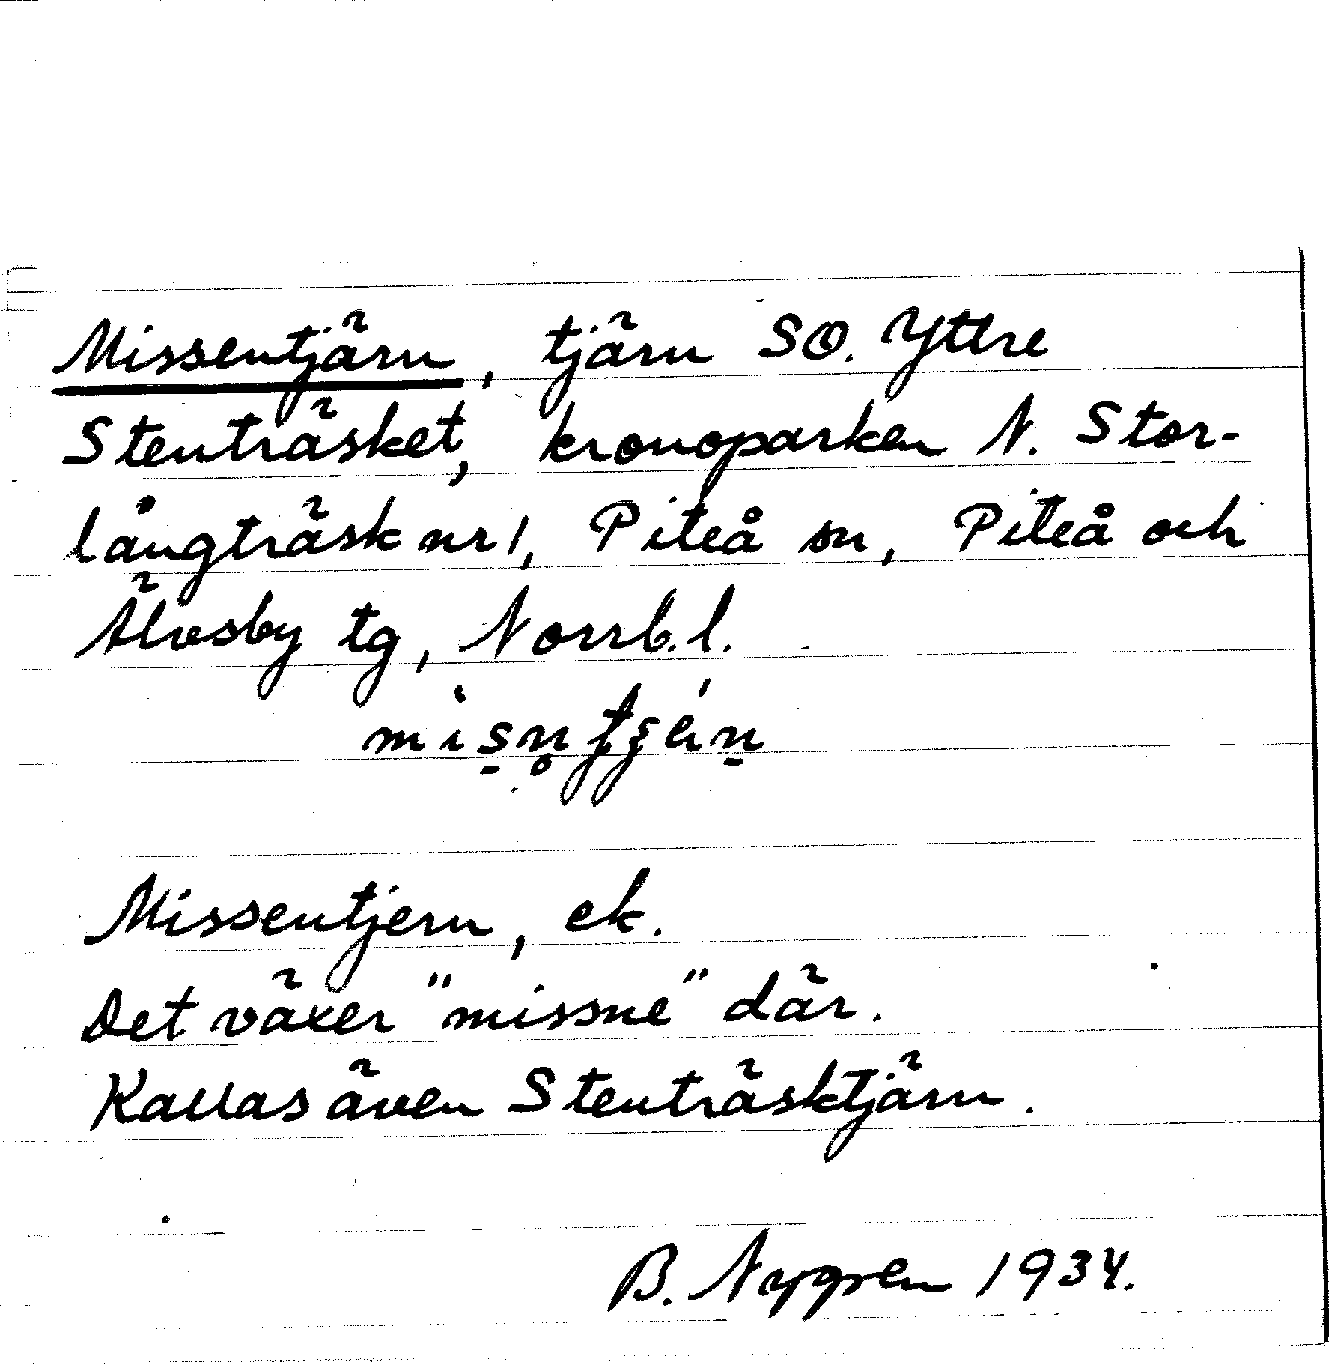 Missentjärn, tjärn SO. Yttre
Stenträsket, kronoparken N. Stor-
långträsk nr 1, Piteå sn, Piteå och
Älvsby tg, Norrb. l.
Missentjern, ek.
Det växer "missne" där.
Kallas även Stenträsktjärn.
B. Nygren 1934.